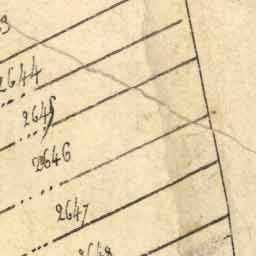 2644
2645
2646
2647
2648